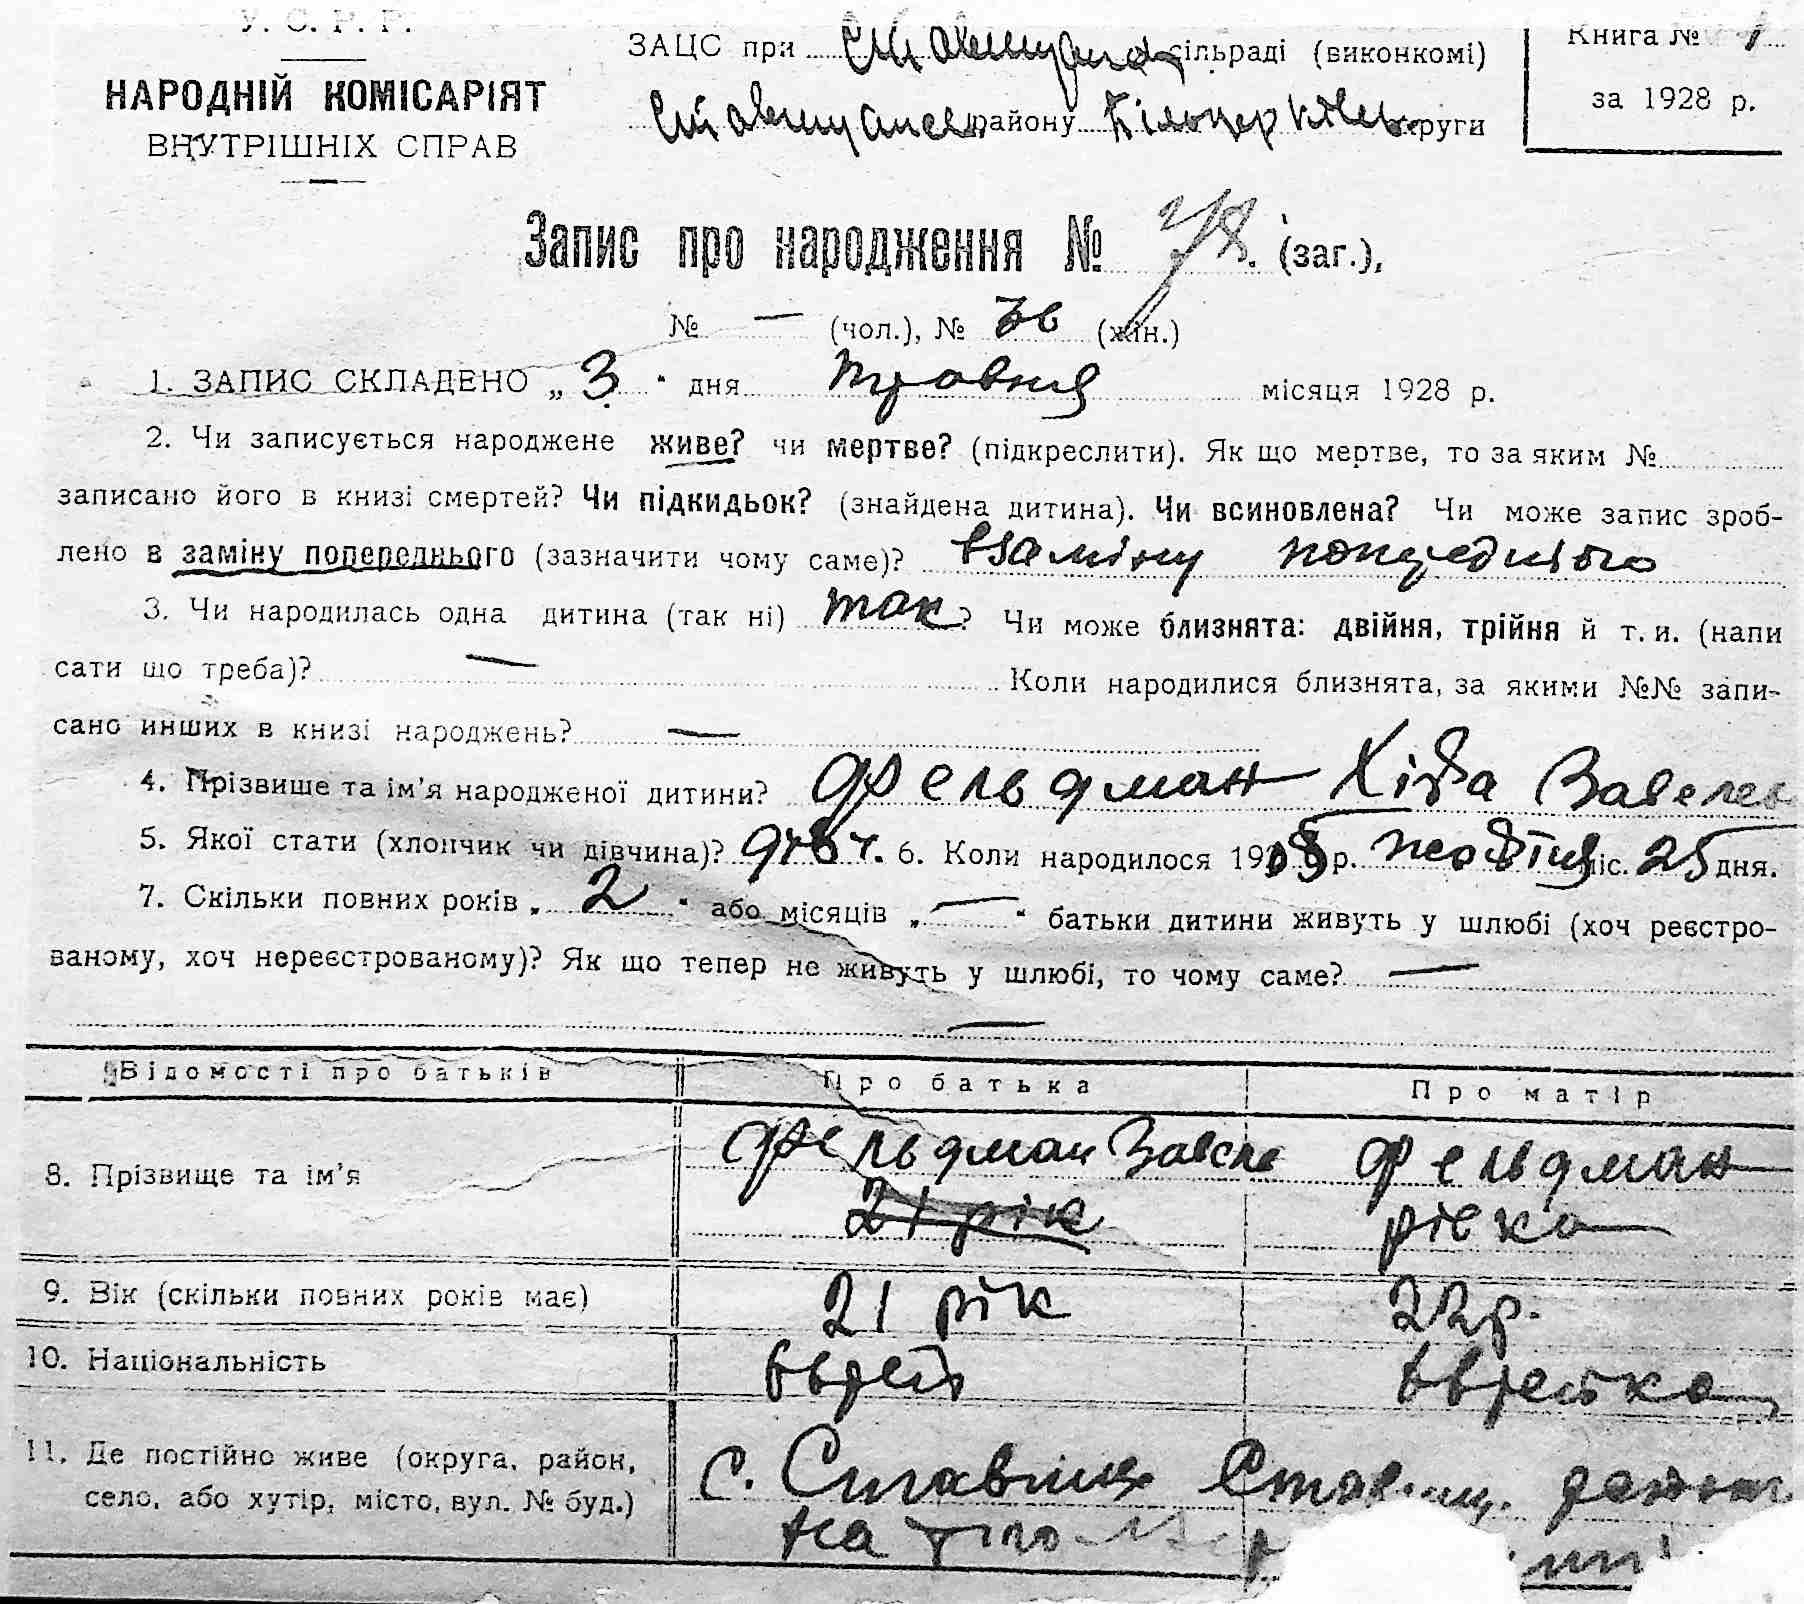 У. С. Р. Р.
НАРОДНІЙ КОМІСАРІЯТ
ВНУТРІШНІХ СПРАВ
ЗАЦС при Ставищанск сільраді (виконкомі)
Ставищанськ району Білоцерківськ округи
Книга № 1
за 1928 р.
Запис про народження № 78. (заг.),
№ — (чол.), № 36 (жін.)
1. ЗАПИС СКЛАДЕНО „ 3 " дня травня місяця 1928 р.
2. Чи записується народжене живе? чи мертве? (підкреслити). Як що мертве, то за яким №
записано його в книзі смертей? Чи підкидьок? (знайдена дитина). Чи всиновлена? Чи може запис зроб-
лено в заміну попереднього (зазначити чому саме)? взаміну попереднього
3. Чи народилась одна дитина (так ні) так? Чи може близнята: двійня, трійня й т. и. (напи
сати що треба)? — Коли народилися близнята, за якими №№ запи-
сано инших в книзі народжень? —
4. Прізвище та ім'я народженої дитини? Фельдман Завелев
5. Якої стати (хлопчик чи дівчина)? дівч. 6. Коли народилося р. жовтня міс. 25 дня.
7. Скільки повних років „ 2 " або місяців „ — " батьки дитини живуть у шлюбі (хоч реєстро-
ваному, хоч нереєстрованому)? Як що тепер не живуть у шлюбі, то чому саме? —
—
Відомості про батьків Про батька Про матір
8. Прізвище та ім'я Фельдман Завель Фельдман
21 рік Рівка
9. Вік (скільки повних років має) 21 рік 22 р.
10. Національність Єврей Єврейка
11. Де постійно живе (округа, район,
село, або хутір, місто, вул. № буд.)
с. Ставище Ставищ. району
на